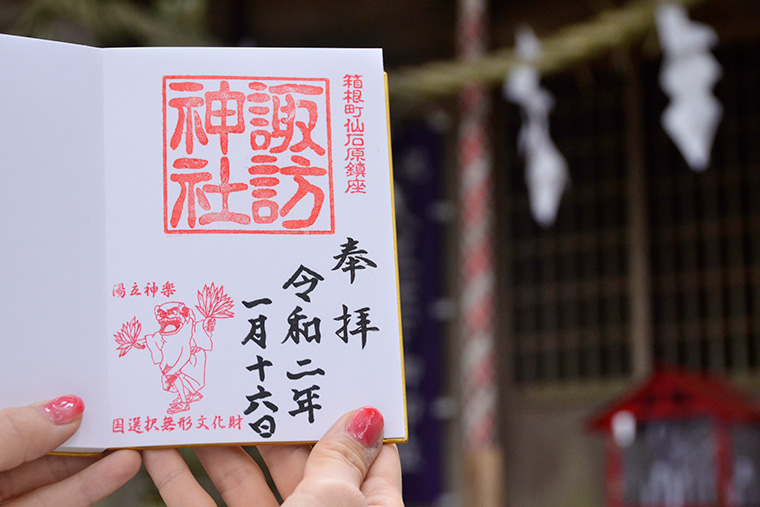 箱根町仙石原鎮座
諏訪
神社
奉拝
令和二年
一月十六日
湯立神楽
国選択無形文化財